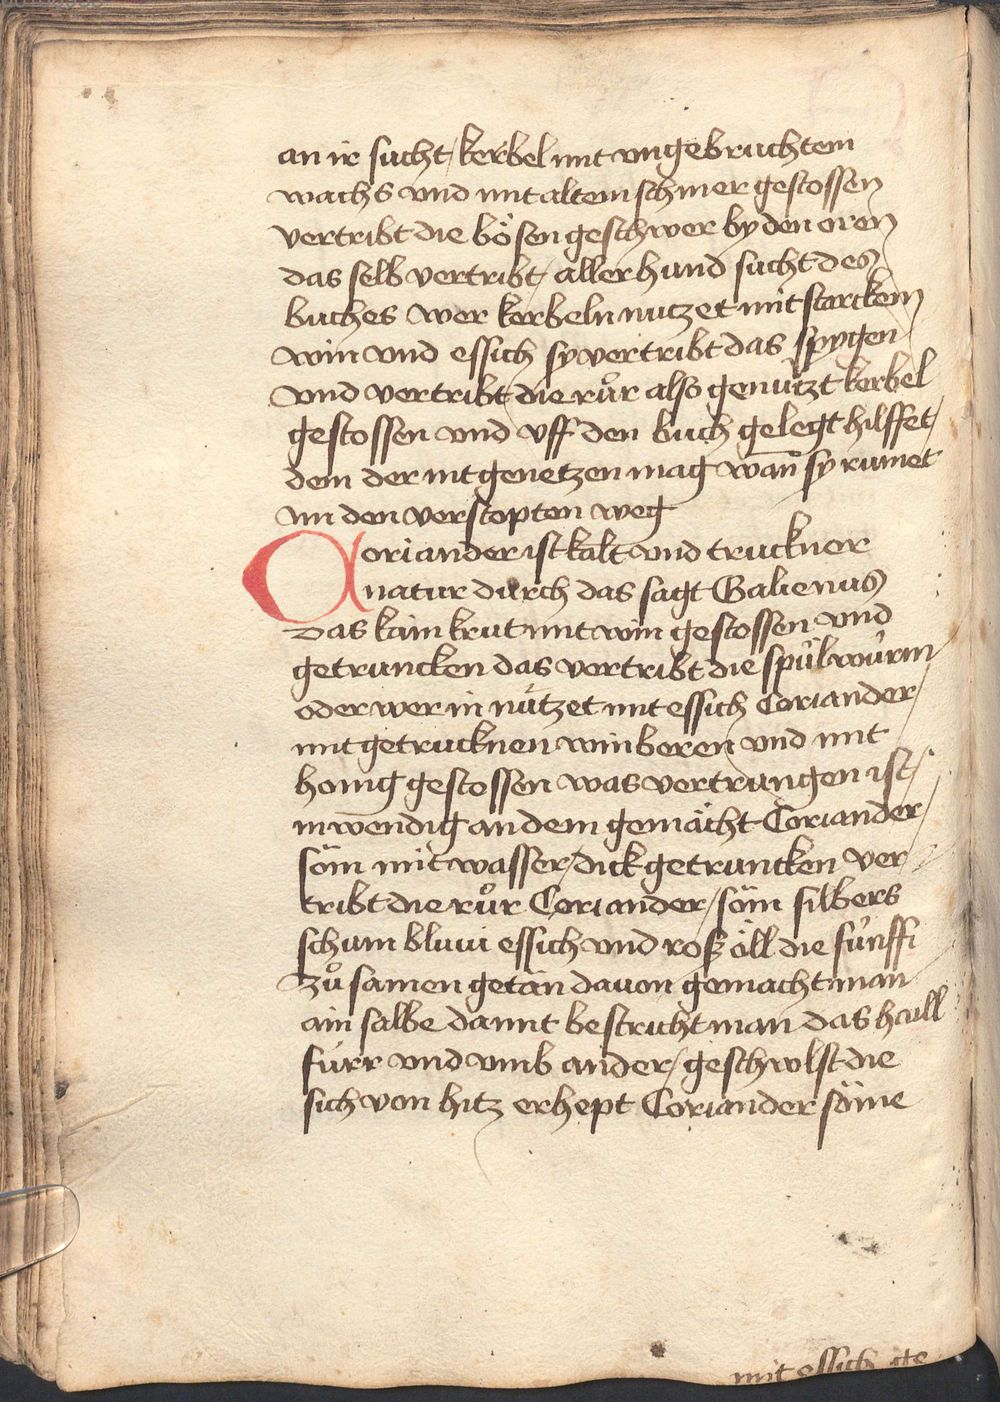 an ir sucht / kerbel mit vngebruchtem
wachs vnd mit altem schmer gestossen
vertribt die bösen geschwer by den oren
das selb vertribt / aller hand sucht des
buches wer kerbeln nutzet mit starckem
win vnd essich sy vertribt das spygen
vnd vertribt die růr also genützt kerbel
gestossen vnd vff den buch gelegt hilffet /
dem der nit genetzen mag wan̄ sy rumet
im den verstopten weg
Coriander ist kalt vnd truckner
natur durch das sagt Galienus
Das kain krut mit win gestossen vnd
getruncken das vertribt die spůlwůrm
oder wer in nützet mit essich Coriander /
mit getrucknen winberen vnd mit
honig gestossen was vertrungen ist /
inwendig an dem gemächt Coriander /
söm mit wasser / dick getruncken ver
tribt die růr Coriander / söm silbers
schum essich vnd roß öll die fünffi
zů samen getän dauon gemacht man
ain salbe damit bestricht man das haill
fürr vnd vmb ander / geschwlst die
sich von hitz erhept Coriander söme
mit essich ge